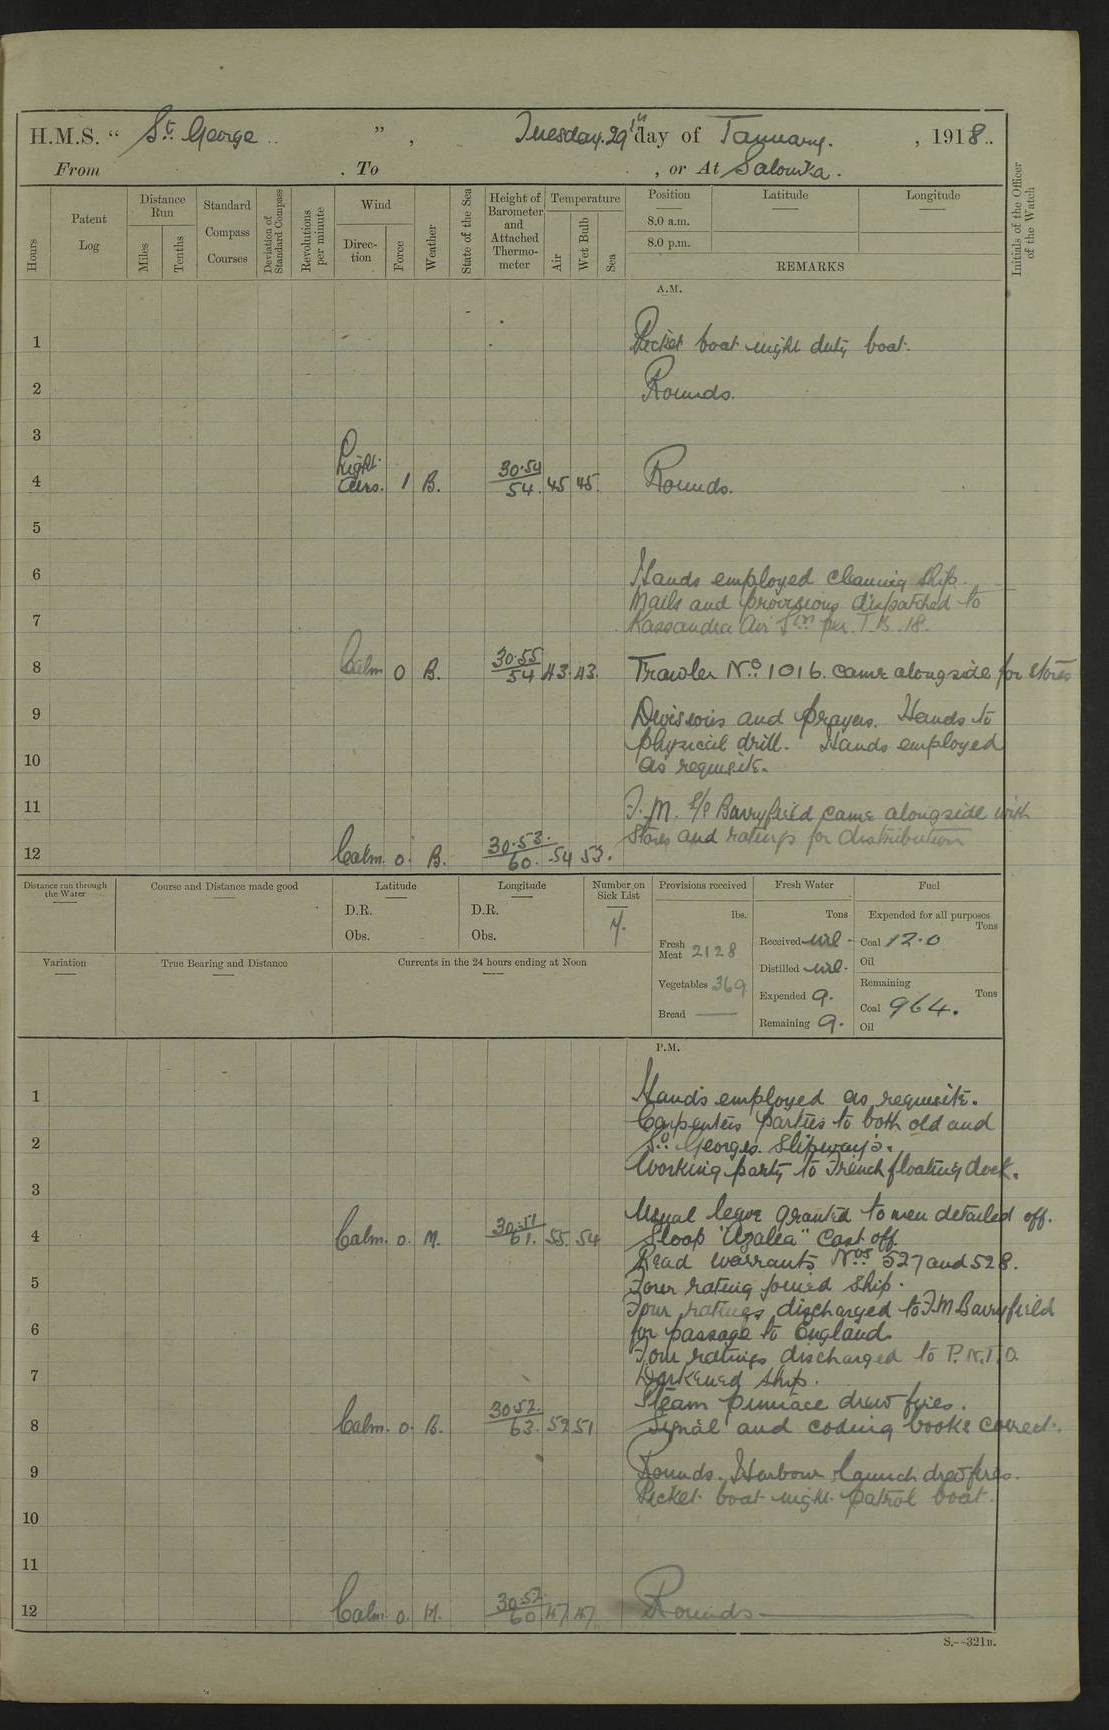 H.M.S. “ St. George ”, Tuesday 29th day of January. , 1918.
From . To , or At Salonika.
Hours
Patent Log
Distance Run
Miles
Tenths
Standard Compass Courses
Deviation of Standard Compass
Revolutions per minute
Wind
Direction
Force
Weather
State of the Sea
Height of Barometer and Attached Thermometer
Temperature
Air
Wet Bulb
Sea
Position
8.0 a.m.
8.0 p.m.
Latitude
Longitude
REMARKS
Initials of the Officer of the Watch
A.M.
1 Picket boat night duty boat.
2 Rounds.
3
4 Light airs. 1 B. 30.54 54. 45 45. Rounds.
5
6 Hands employed cleaning ship.
Mails and provisions dispatched to
7 Kassandra Air Stn per T.B. 18.
8 Calm 0 B. 30.55 54 43. 43. Trawler No. 1016. came alongside for stores
9 Divisions and prayers. Hands to
physical drill. Hands employed
10 as requisite.
11 F.M. S/S Barryfield came alongside with
Stores and ratings for distribution
12 Calm. 0. B. 30.53. 60. 54 53.
Distance run through the Water
Course and Distance made good
Latitude
D.R.
Obs.
Longitude
D.R.
Obs.
Number on Sick List
7.
Provisions received
lbs.
Fresh Meat 2128
Vegetables 369
Bread
Fresh Water
Tons
Received nil -
Distilled nil -
Expended 9.
Remaining 9.
Fuel
Expended for all purposes
Tons
Coal 12.0
Oil
Remaining
Tons
Coal 964.
Oil
Variation
True Bearing and Distance
Currents in the 24 hours ending at Noon
P.M.
1 Hands employed as requisite.
Carpenters parties to both old and
2 St. Georges Slipway's.
Working party to French floating dock.
3
Usual leave granted to men detailed off.
4 Calm. 0. M. 30.51 61. 55. 54 Sloop "Azalea" Cast off.
Read Warrants Nos 527 and 528.
5 Four rating joined Ship.
Four ratings discharged to F.M Barryfield
6 for passage to England.
Four ratings discharged to P.N.T.O.
7 Darkened Ship.
Steam pinnace drew fires.
8 Calm. 0. B. 30.52. 63. 52 51 Signal and coding books correct.
9 Rounds. Harbour launch drew fires.
Picket boat night patrol boat.
10
11
12 Calm. 0. M. 30.52. 60 47 47 Rounds
S.—321B.